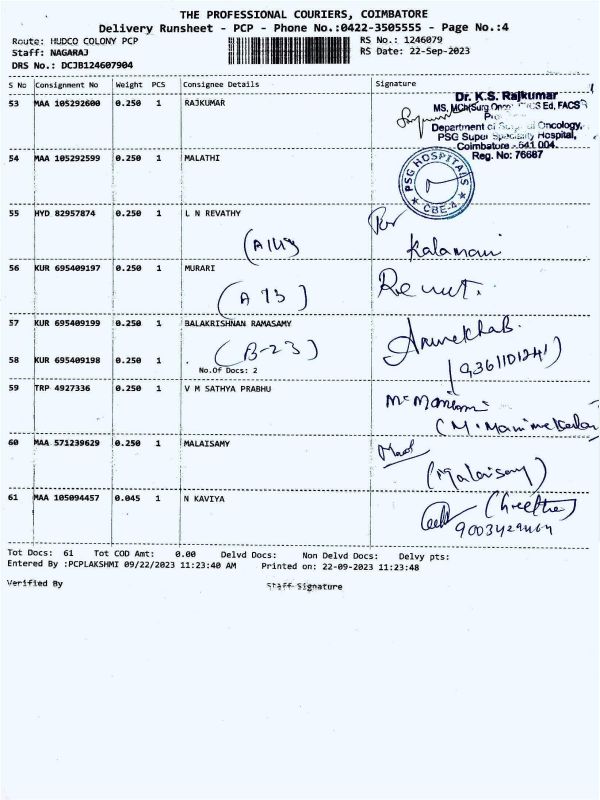 THE PROFESSIONAL COURIERS, COIMBATORE
Delivery Runsheet - PCP - Phone No.:0422-3505555 - Page No.:4
Route: HUDCO COLONY PCP RS No.: 1246079
Staff: NAGARAJ RS Date: 22-Sep-2023
DRS No.: DCJB124607904
S No Consignment No Weight PCS Consignee Details Signature
53 MAA 105292600 0.250 1 RAJKUMAR
Dr. K.S. Rajkumar
MS, MCh(Surg Onco) FACS
Department of Surgical Oncology,
PSG Super Speciality Hospital,
Coimbatore - 641 004.
Reg. No: 76687
54 MAA 105292599 0.250 1 MALATHI
PSG HOSPITALS
★ CBE-4 ★
55 HYD 82957874 0.250 1 L N REVATHY
Kalamani
56 KUR 695409197 0.250 1 MURARI
(A 73)
57 KUR 695409199 0.250 1 BALAKRISHNAN RAMASAMY
(B-23)
58 KUR 695409198 0.250 1
No.Of Docs: 2
(9361101241)
59 TRP 4927336 0.250 1 V M SATHYA PRABHU
60 MAA 571239629 0.250 1 MALAISAMY
(Malaisamy)
61 MAA 105094457 0.045 1 N KAVIYA
Tot Docs: 61 Tot COD Amt: 0.00 Delvd Docs: Non Delvd Docs: Delvy pts:
Entered By :PCPLAKSHMI 09/22/2023 11:23:40 AM Printed on: 22-09-2023 11:23:48
Verified By Staff Signature